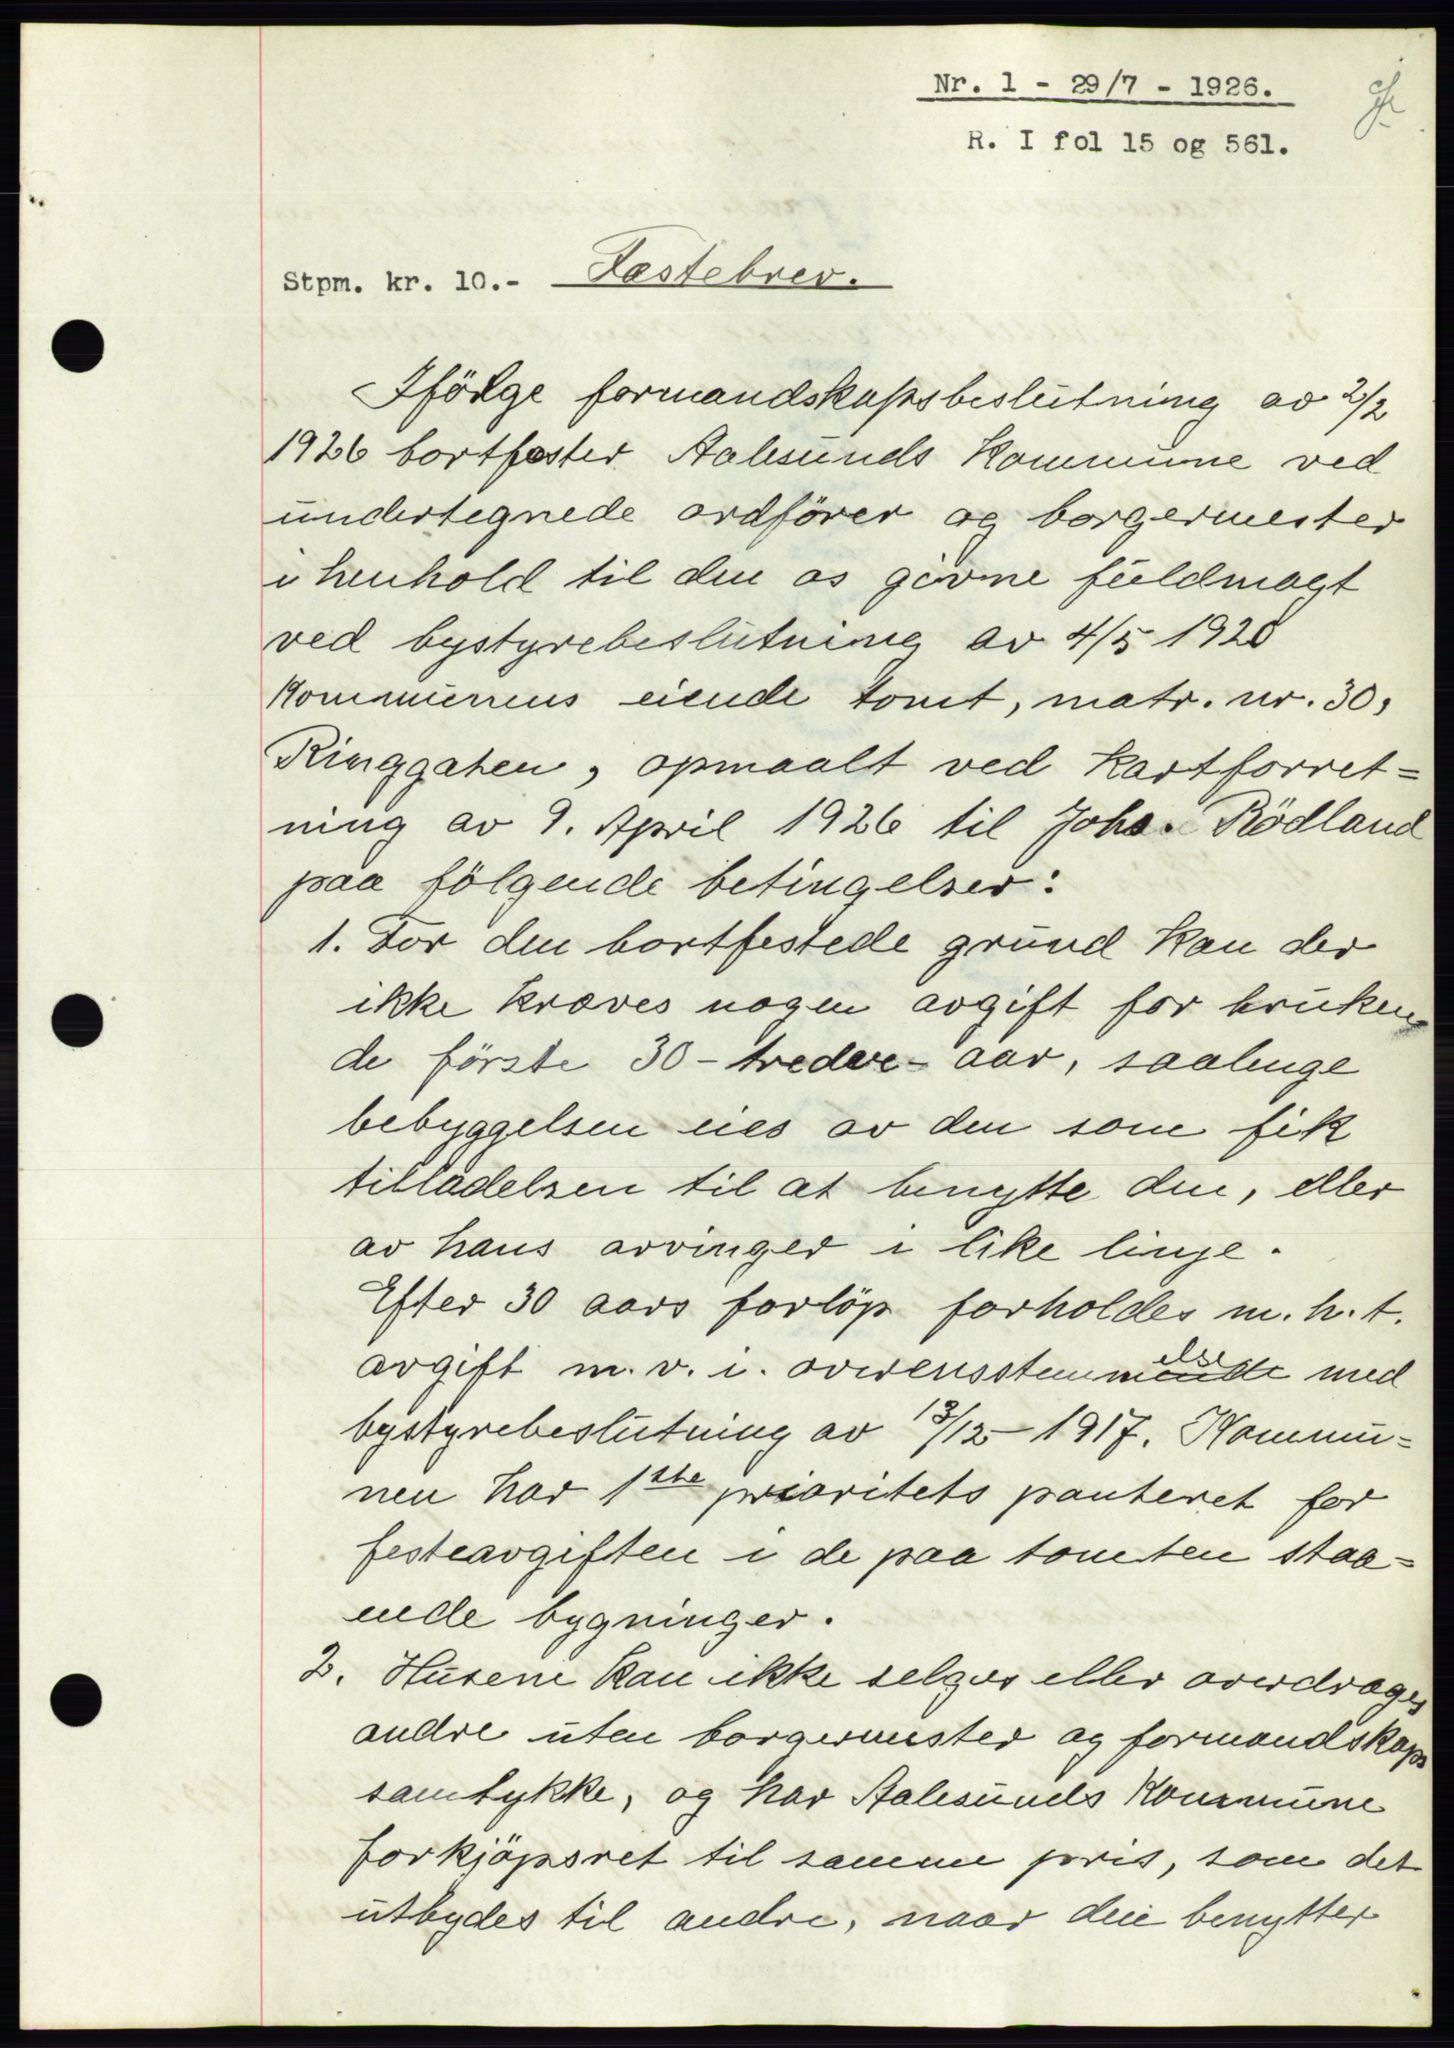 Nr. 1 - 29/7 - 1926.
R. I fol 15 og 561.
Stpm. kr. 10.- Fæstebrev.
Ifölge formandskapsbeslutning av 2/2
1926 bortfester Aalesunds Kommune ved
undertegnede ordförer og borgermester
i henhold til den os givne fuldmagt
ved bystyrebeslutning av 4/5 1920
Kommunens eiende tomt, matr. nr. 30,
Ringgaten, opmaalt ved Kartforret=
ning av 9. April 1926 til Johs. Rödland
paa fölgende betingelser:
1. For den bortfestede grund kan der
ikke kræves nogen avgift for bruken
de förste 30 - tredve - aar, saalenge
bebyggelsen eies av den som fik
tilladelsen til at benytte den, eller
av hans arvinger i like linje.
Efter 30 aars forlöp forholdes m. h. t.
avgift m. v. i. overensstemmelse med
bystyrebeslutning av 13/12 - 1917. Kommu=
nen har 1ste prioritets panteret for
festeavgiften i de paa tomten staa=
ende bygninger.
2. Husene kan ikke selges eller overdrages
andre uten borgermester og formandskaps
samtykke, og har Aalesunds Kommune
forkjöpsret til samme pris, som det
utbydes til andre, naar den benytter